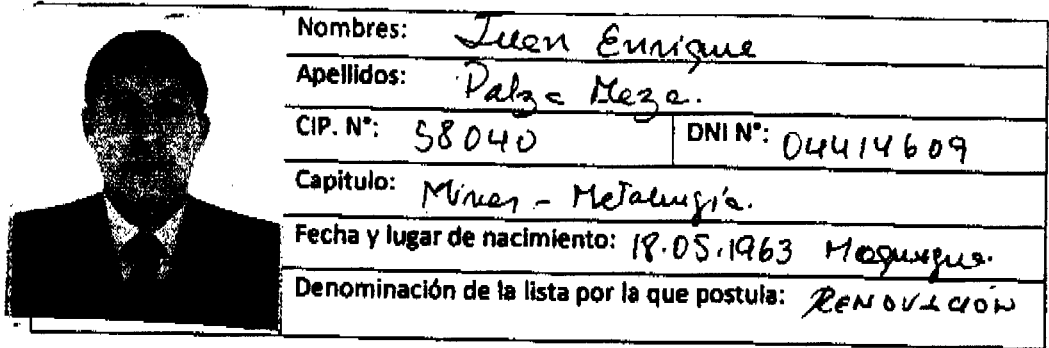 Nombres: Juan Enrique
Apellidos: Palza Meza.
CIP. N°: 58040 DNI N°: 04414609
Capitulo: Minas - Metalurgía.
Fecha y lugar de nacimiento: 18.05.1963 Moquegua.
Denominación de la lista por la que postula: RENOVACIÓN